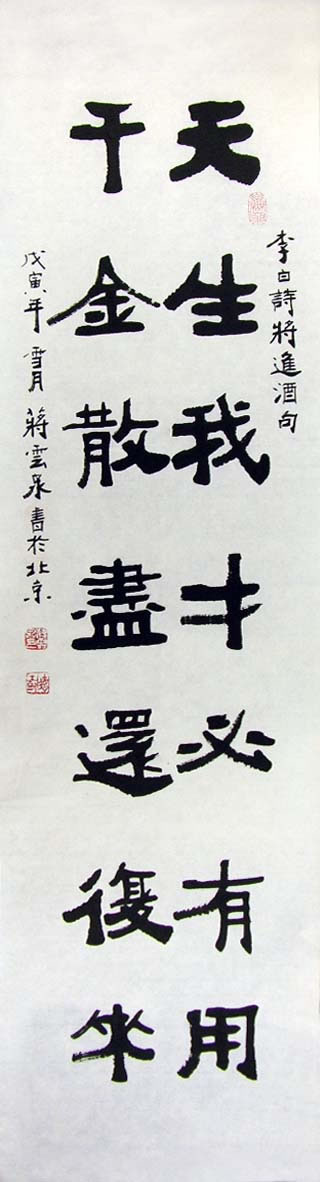 李白詩將進酒句
天生我才必有用
千金散盡還復來
戊寅年雪月蔣雲泉書於北京